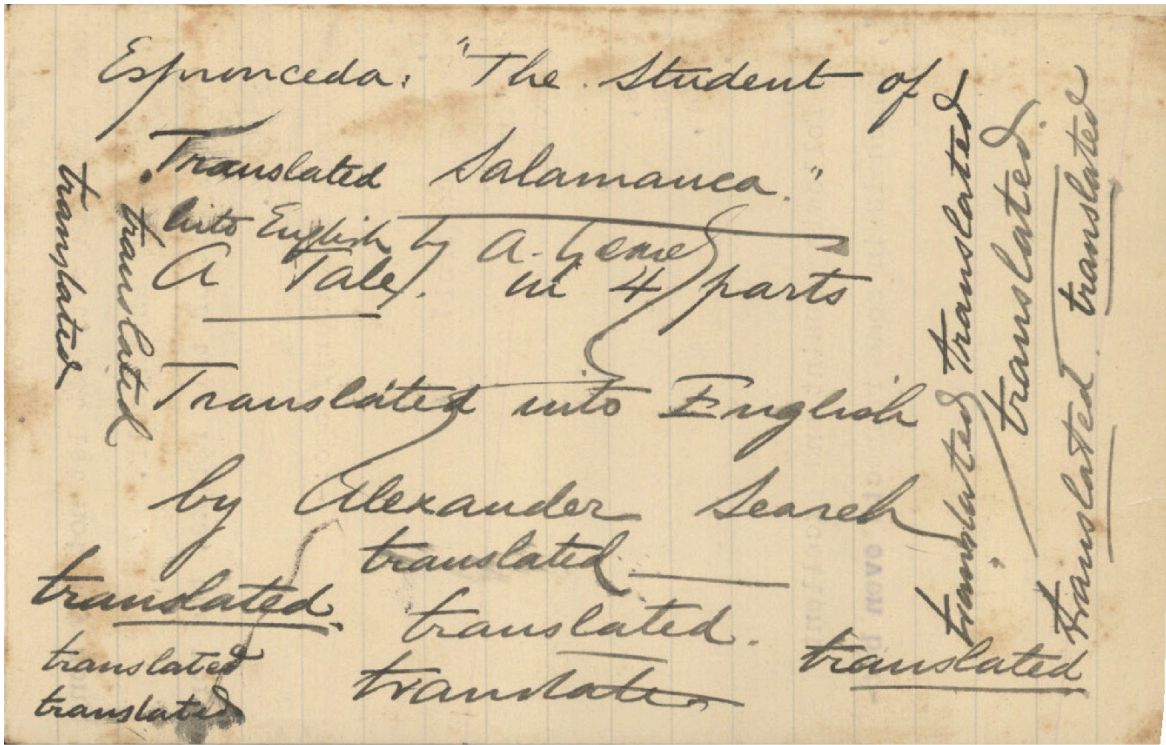 Espronceda: "The Student of
Translated Salamanca."
into English by A.
A Tale. in 4 parts
Translated into English
by Alexander Search
translated
translated.
translated.
translated
translated
translate
translated
translated
translated
translated
translated
translated
translated
translated
translated
translated